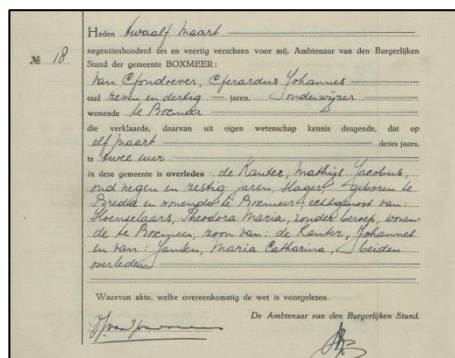 № 18
Heden twaalf Maart
negentienhonderd zes en veertig verscheen voor mij, Ambtenaar van den Burgerlijken
Stand der gemeente BOXMEER:
van Gondoever, Gerardus Johannes
oud zeven en dertig jaren, onderwijzer
wonende te Boxmeer
die verklaarde, daarvan uit eigen wetenschap kennis dragende, dat op
elf Maart dezes jaars,
te twee uur
in deze gemeente is overleden: de Kanter, Mathijs Jacobus,
oud negen en zestig jaren, slager, geboren te
Breda en wonende te Boxmeer, echtgenoot van:
Hoenselaars, Theodora Maria, zonder beroep, wonen-
de te Boxmeer, zoon van: de Kanter, Johannes
en van: Jansen, Maria Catharina, beiden
overleden
Waarvan akte, welke overeenkomstig de wet is voorgelezen.
De Ambtenaar van den Burgerlijken Stand.